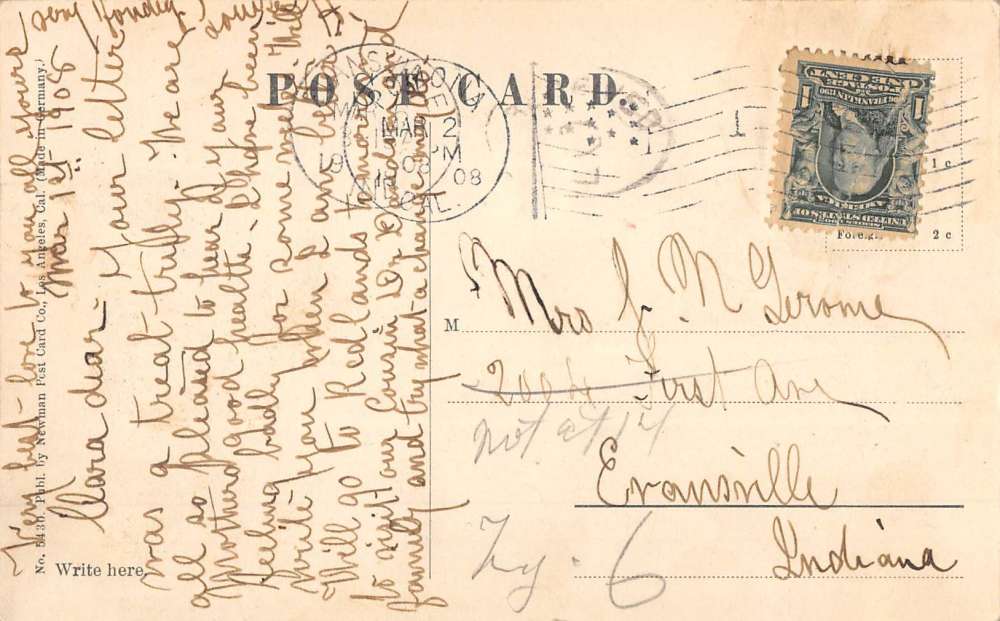 POST CARD
MAR 2
08
1 c
Foreign
2 c
UNITED STATES OF AMERICA
ONE CENT
No. 5430. Publ. by Newman Post Card Co., Los Angeles, Cal. (Made in Germany.)
Write here.
Mar 1st 1908
Clara dear - Your letter
was a treat - truly. We are
all so pleased to hear of your
Mothers good health. I have been
feeling badly for some weeks. Will
write you when I am better
Will go to Redlands tomorrow
to visit our Cousin Dr
family and try what a change will do
Very best love to you all yours
very fondly
M
Mrs J. M Gerome
200 First Ave
not at 14
Evansville
Indiana
6